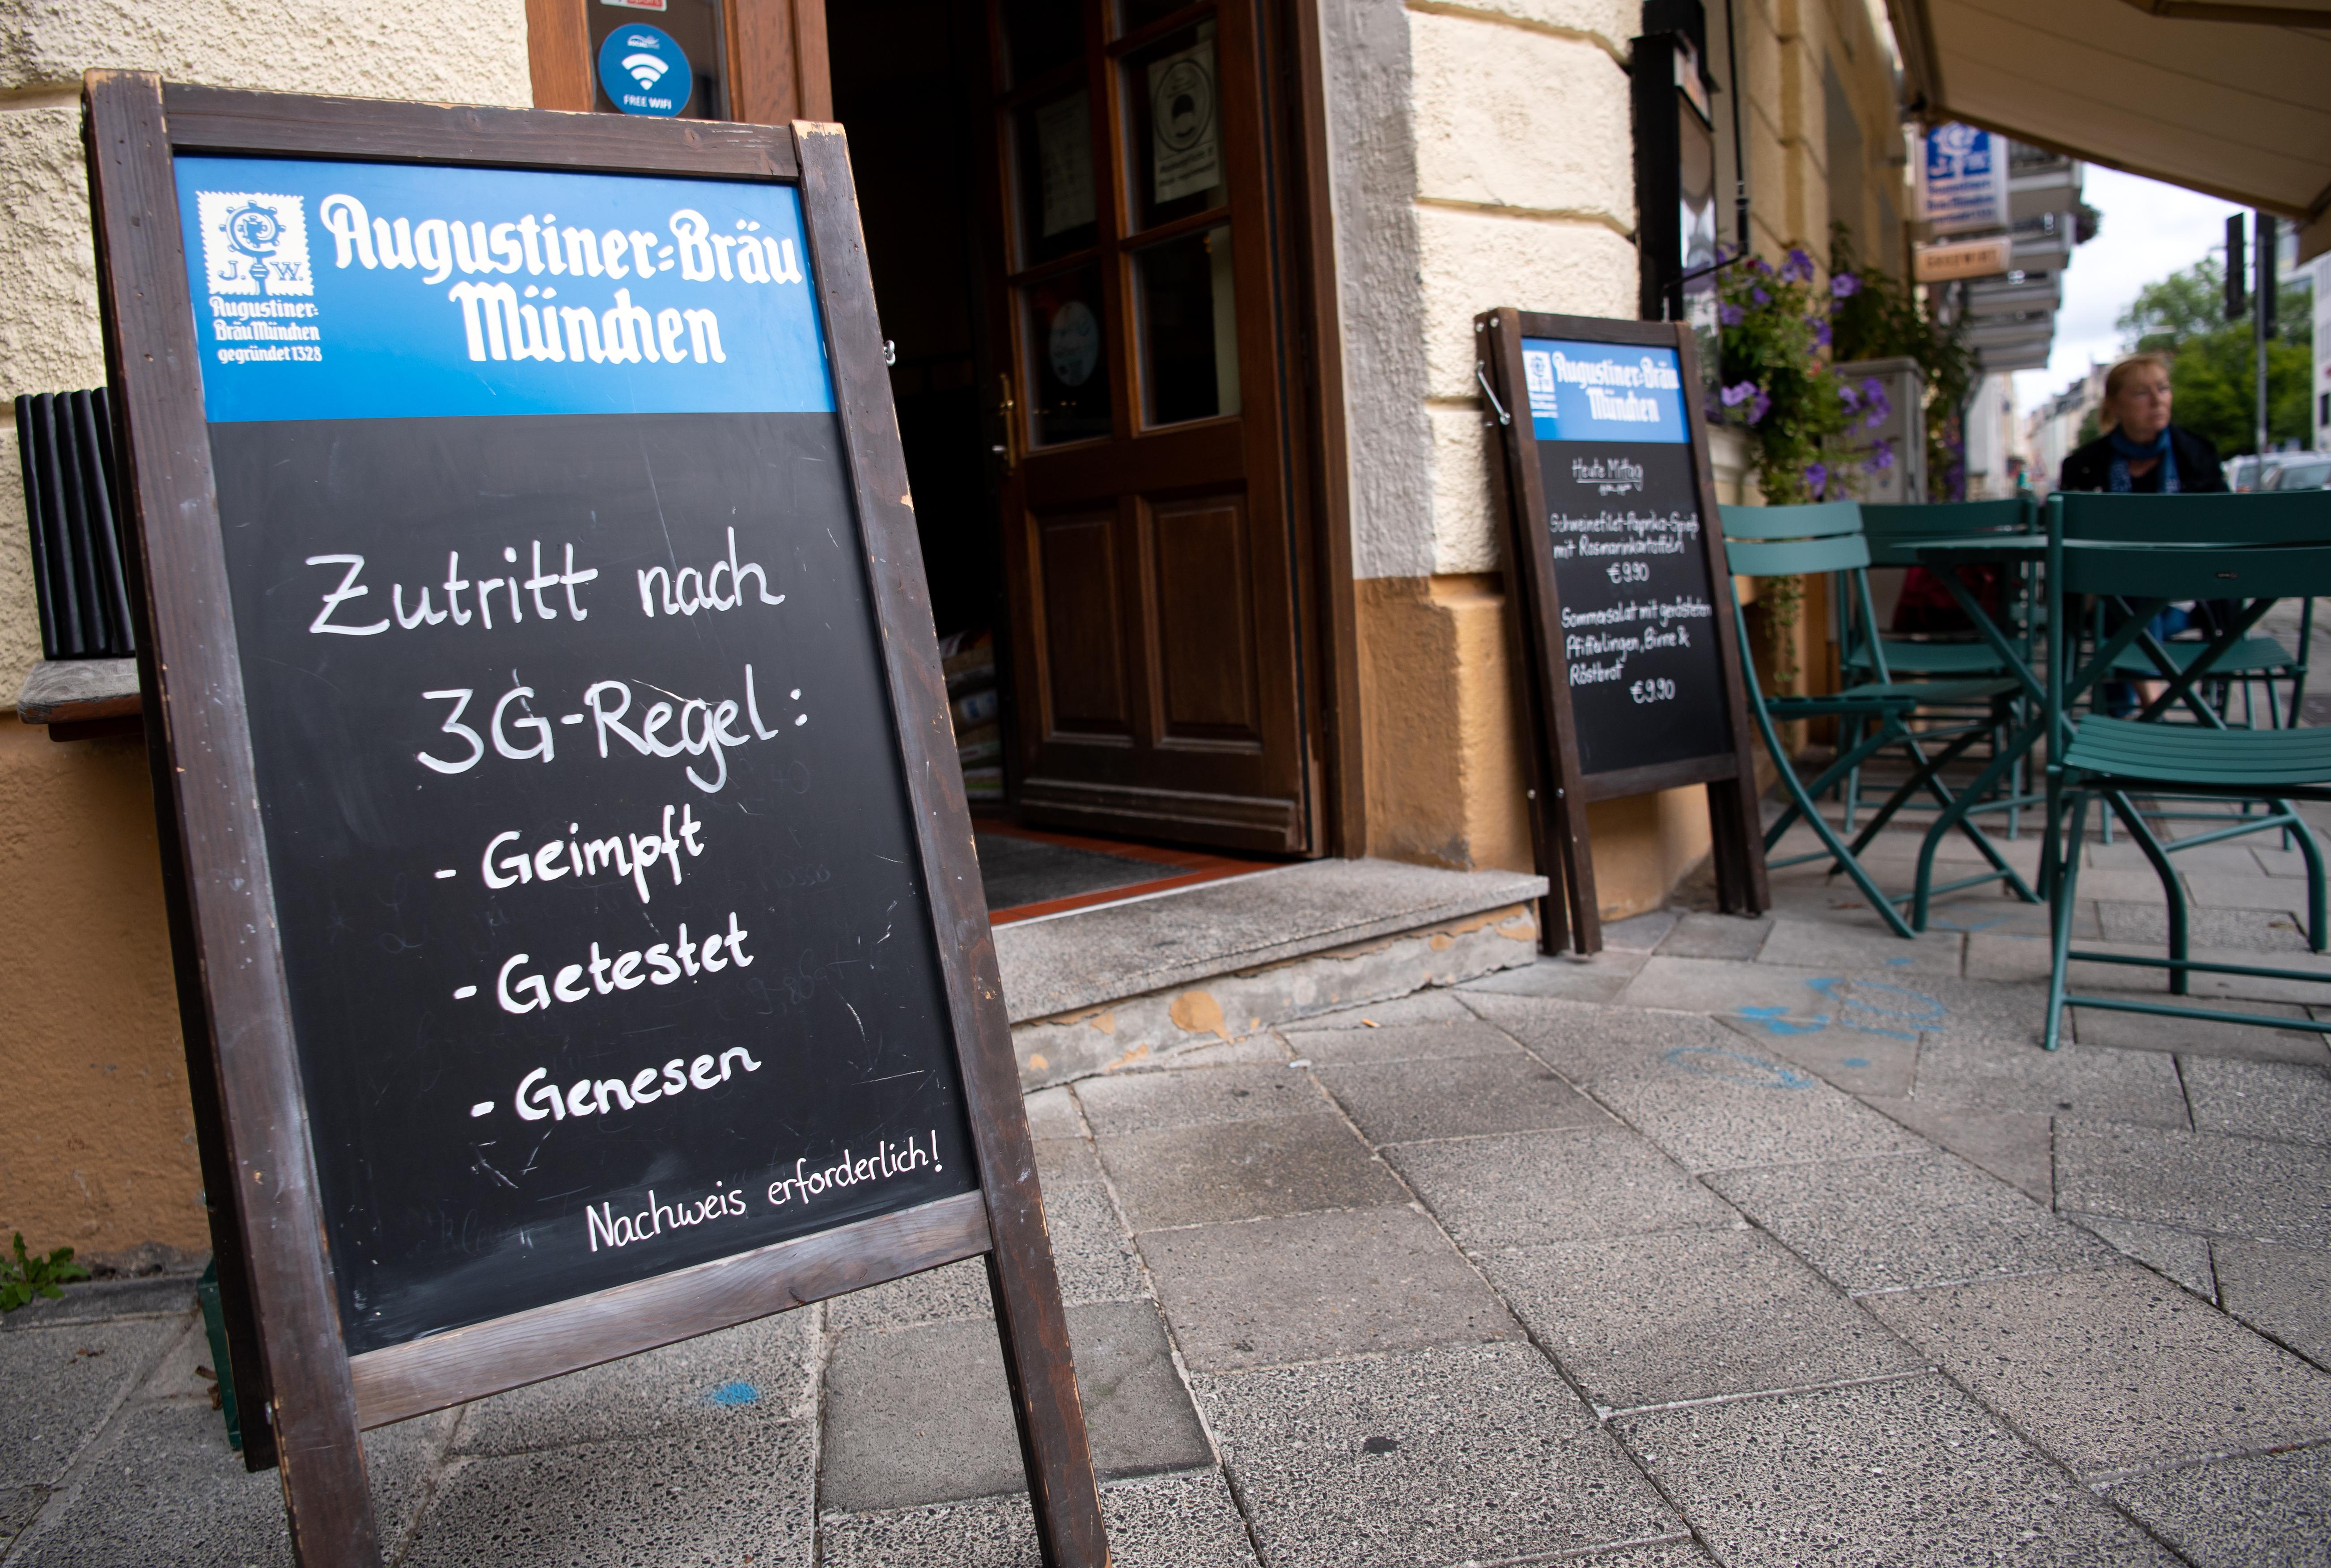 FREE WIFI
J. W.
Augustiner-
Bräu München
gegründet 1328
Augustiner-Bräu
München
Zutritt nach
3G-Regel:
- Geimpft
- Getestet
- Genesen
Nachweis erforderlich!
Augustiner-Bräu
München
Heute Mittag
Schweinefilet-Paprika-Spieß
mit Rosmarinkartoffeln
€ 9.90
Sommersalat mit gerösteten
Pfifferlingen, Birne &
Röstbrot
€ 9.90